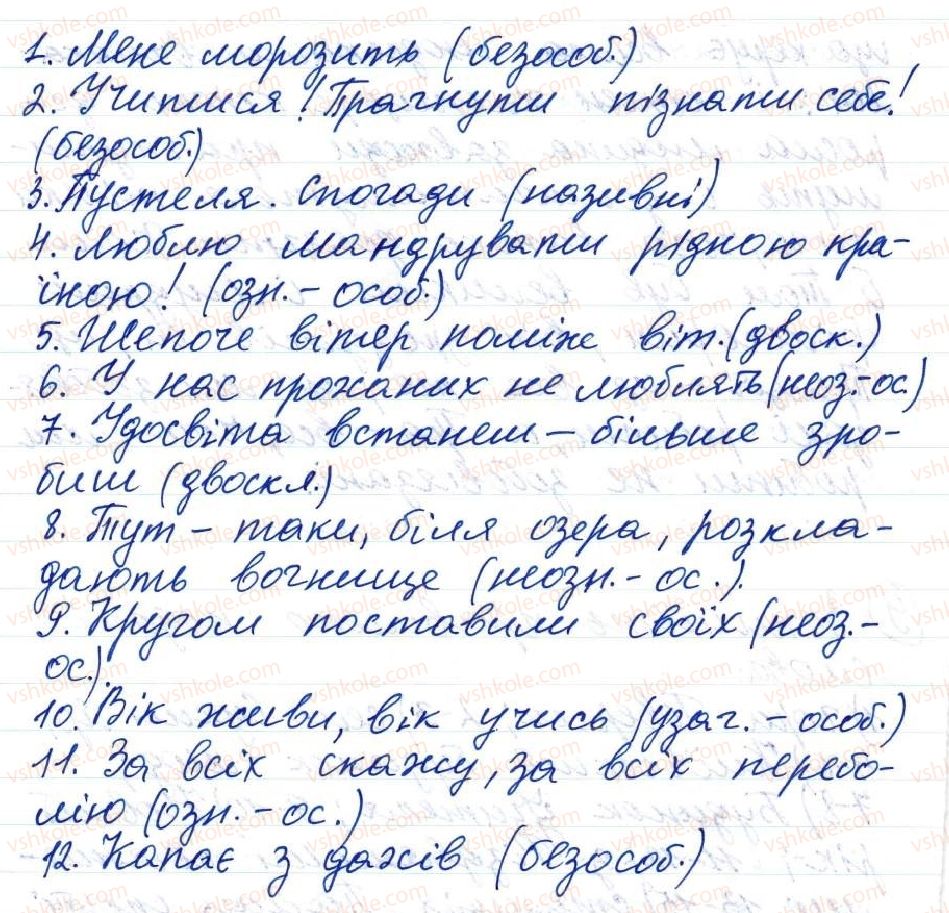 1. Мене морозить (безособ.)
2. Учитися! Прагнути пізнати себе!
(безособ.)
3. Пустеля. Спогади (називні)
4. Люблю мандрувати рідною кра-
їною! (озн.- особ.)
5. Шепоче вітер поміж віт. (двоск.)
6. У нас проханих не люблять (неоз.-ос.)
7. Удосвіта встанеш - більше зро-
биш (двоскл.)
8. Тут - таки, біля озера, розкла-
дають вогнище (неозн.- ос.).
9. Кругом поставили своїх (неоз.-
ос.).
10. Вік живи, вік учись (узаг. - особ.)
11. За всіх скажу, за всіх перебо-
лію (озн. - ос.)
12. Капає з дахів (безособ.)